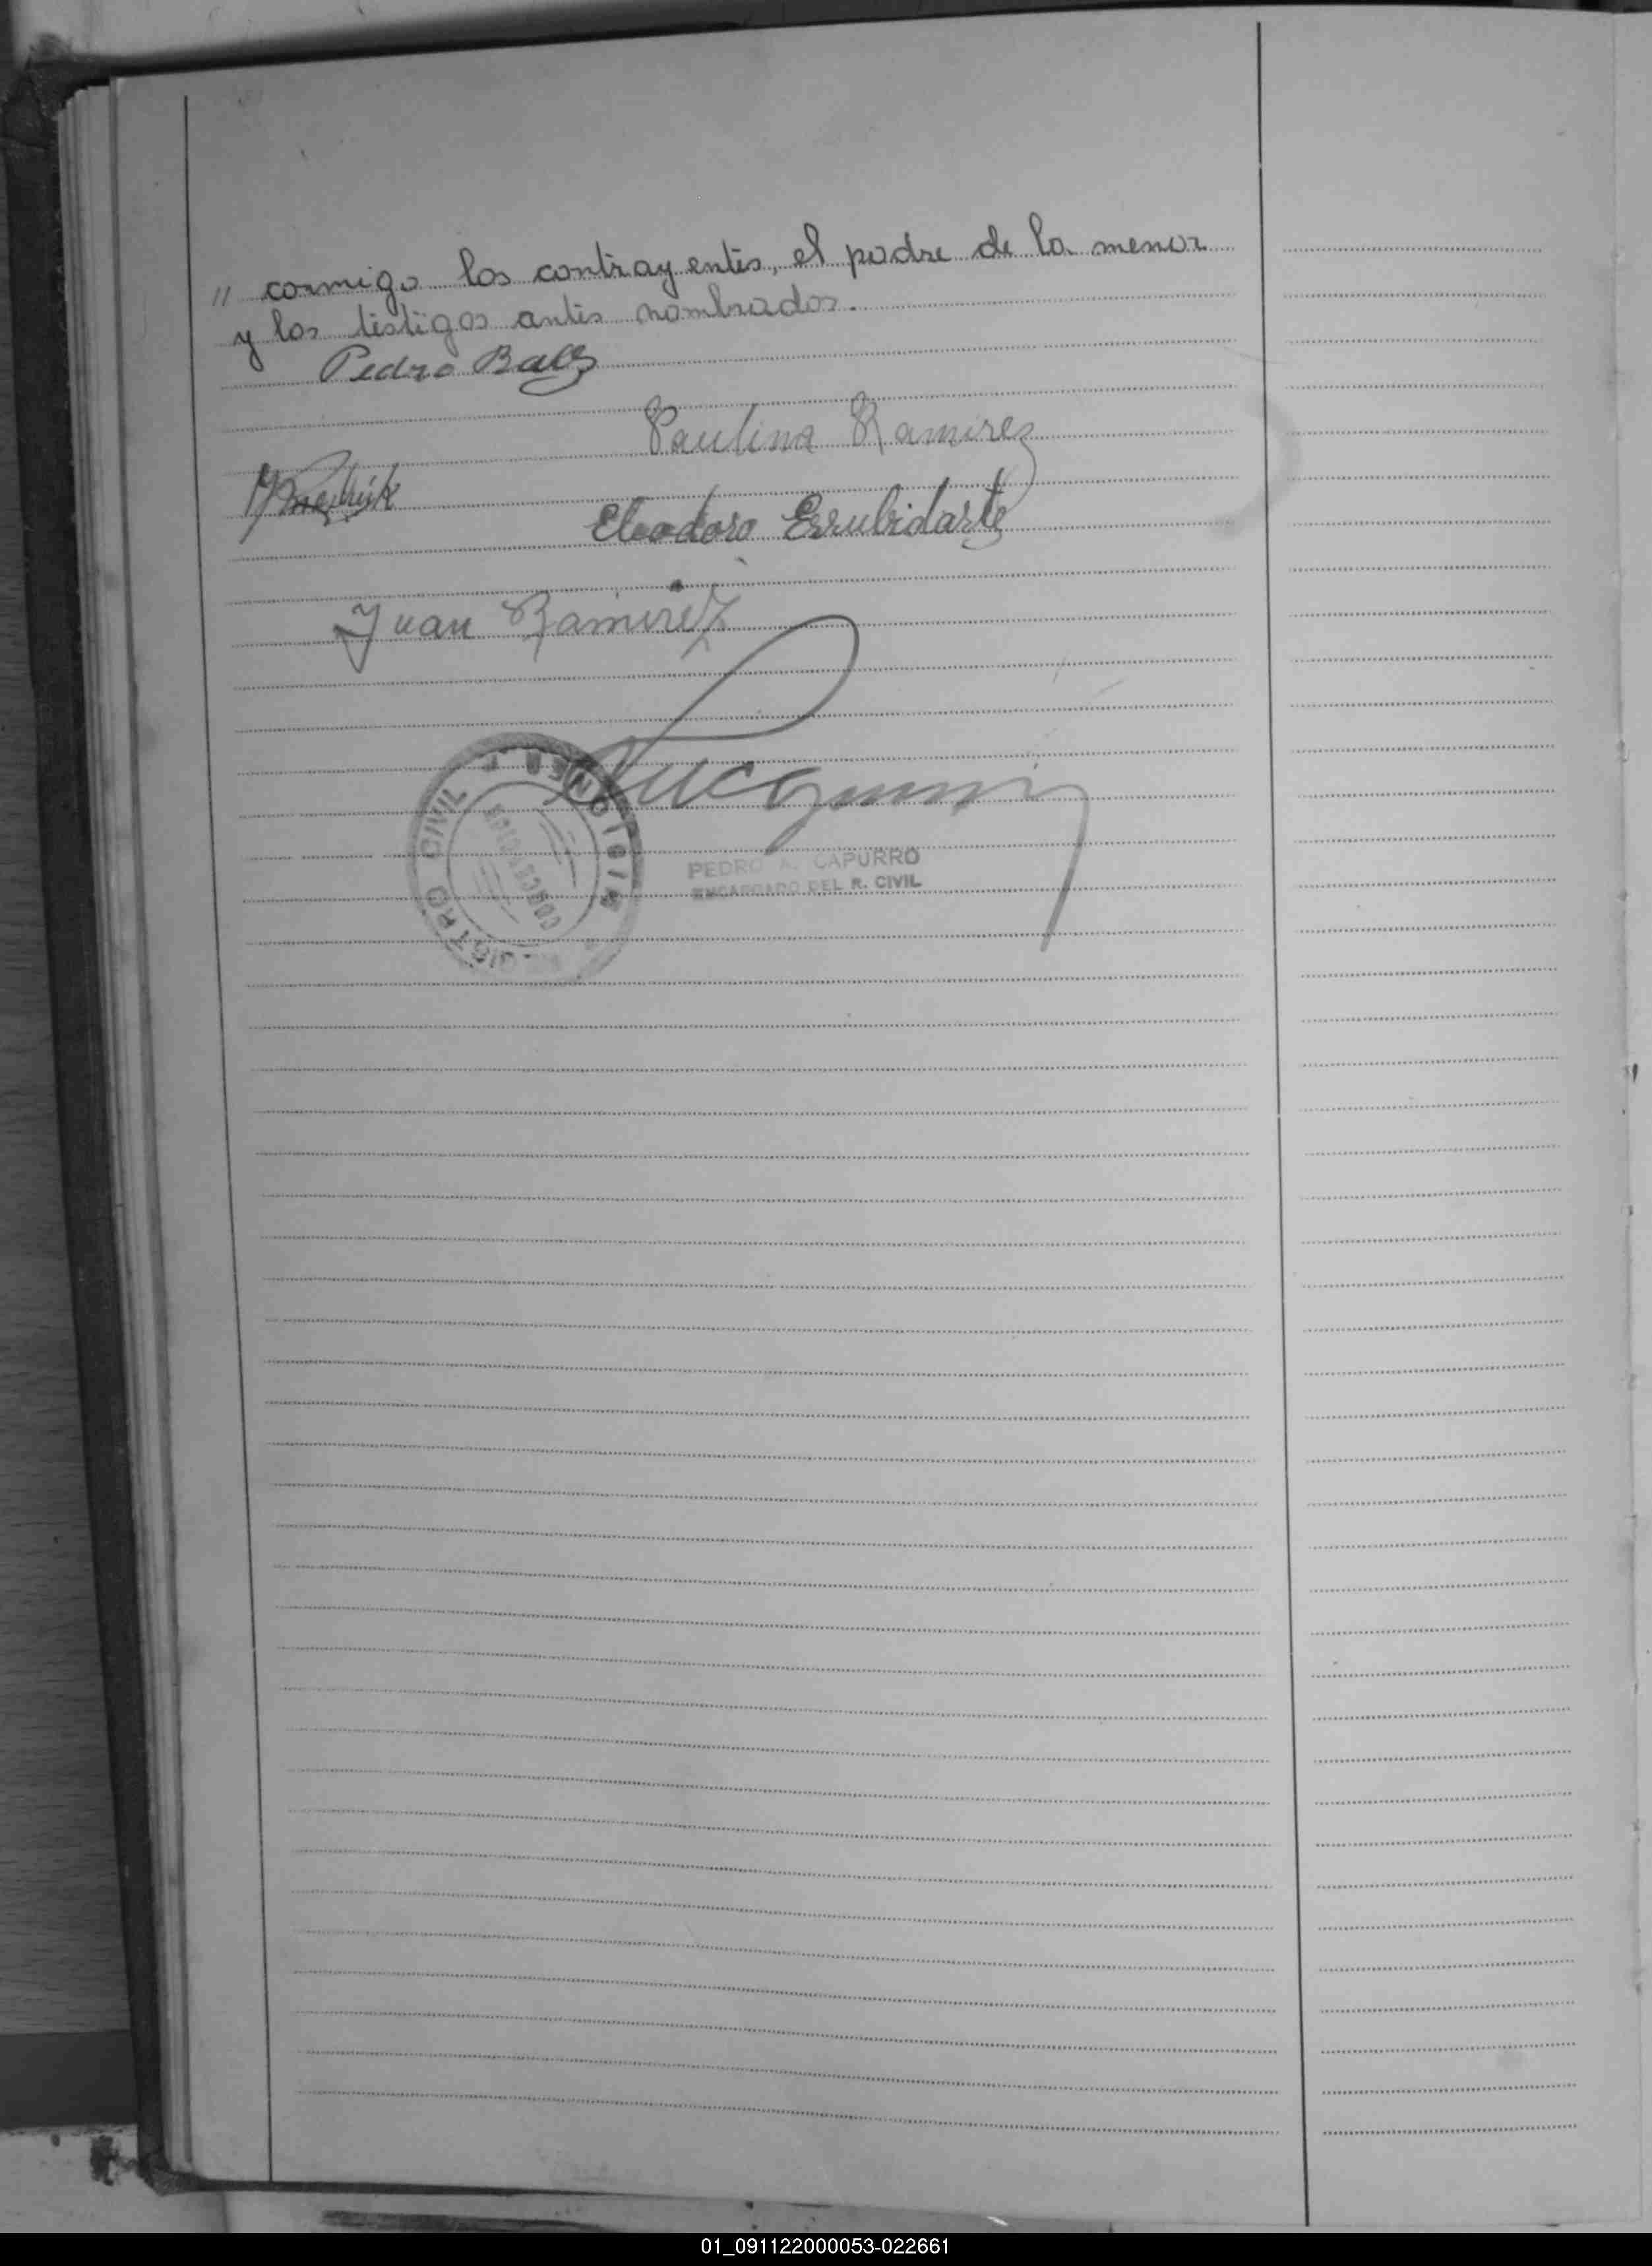 " conmigo los contrayentes, el padre de la menor
y los testigos antes nombrados.
Pedro Baez
Paulina Ramirez
Eleodoro Errubidarte
Juan Ramirez
REGISTRO CIVIL MISIONES
CONCEPCION
PEDRO A. CAPURRO
ENCARGADO DEL R. CIVIL
01_091122000053-022661